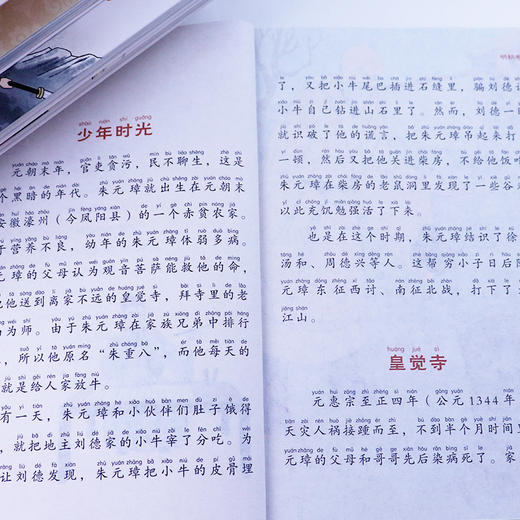 少年时光
元朝末年，官吏贪污，民不聊生，这是
个黑暗的年代。朱元璋就出生在元朝末
安徽濠州（今凤阳县）的一个赤贫农家。
于营养不良，幼年的朱元璋体弱多病。
元璋的父母认为观音菩萨能救他的命，
他送到离家不远的皇觉寺，拜寺里的老
为师。由于朱元璋在家族兄弟中排行
，所以他原名“朱重八”，而他每天的
就是给人家放牛。
有一天，朱元璋和小伙伴们肚子饿得
，就把地主刘德家的小牛宰了分吃。为
让刘德发现，朱元璋把小牛的皮骨埋
了，又把小牛尾巴插进石缝里，骗刘德说
小牛自己钻进山石里了。然而，刘德一
就识破了他的谎言，把朱元璋吊起来打
一顿，然后又把他关进柴房，不给他饭吃
朱元璋在柴房的老鼠洞里发现了一些谷
以此充饥勉强活了下来。
也是在这个时期，朱元璋结识了徐
汤和、周德兴等人。这帮穷小子日后
元璋东征西讨、南征北战，打下了
江山。
皇觉寺
元惠宗至正四年（公元1344年
天灾人祸接踵而至，不到半个月时间
元璋的父母和哥哥先后染病死了。家